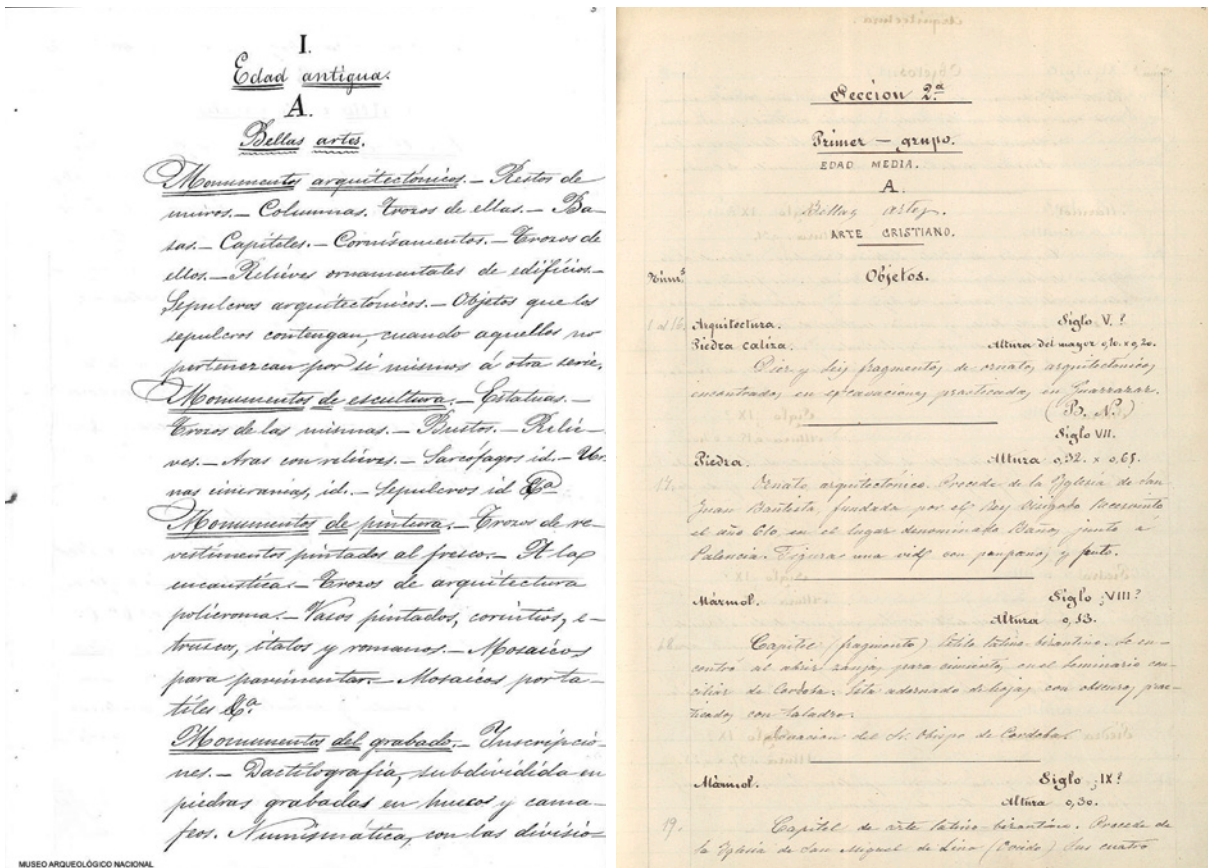 I.
Edad antigua.
A.
Bellas artes.
Monumentos arquitectónicos. — Restos de
muros. — Columnas. Trozos de ellas. — Ba-
sas. — Capiteles. — Cornisamentos. — Trozos de
ellos. — Reliéves ornamentales de edificios. —
Sepulcros arquitectónicos. — Objetos que los
sepulcros contengan, cuando aquellos no
pertenezcan por si mismos á otra serie.
Monumentos de escultura. — Estatuas. —
Trozos de las mismas. — Bustos. — Relié-
ves. — Aras con reliéves. — Sarcófagos id. — Ur-
nas cinerarias, id. — Sepulcros id &a
Monumentos de pintura. — Trozos de re-
vestimentos pintados al fresco. — A la
encaustica. — Trozos de arquitectura
policroma. — Vasos pintados, corintios, e-
truscos, italos y romanos. — Mosaicos
para pavimentar. — Mosaicos porta-
tiles &a.
Monumentos del grabado. — Inscripcio-
nes. — Dactilografía, subdividida en
piedras grabadas en hueco y cama-
feos. Numismática, con las divisio-
MUSEO ARQUEOLÓGICO NACIONAL
Seccion 2.ª
Primer — grupo.
EDAD MEDIA.
A.
Bellas artes.
ARTE CRISTIANO.
Núms. Objetos.
1 al 16. Arquitectura. Siglo V.?
Piedra caliza. Altura del mayor 0,10. x 0,20.
Diez y seis fragmentos de ornatos arquitectonicos,
encontrados en excavaciones practicadas en Guarrazar.
(B. N.)
Siglo VII.
Piedra. Altura 0,32. x 0,65.
17. Ornato arquitectonico. Procede de la Yglesia de San
Juan Bautista, fundada por el Rey Visigodo Recesvinto
el año 610, en el lugar denominado Baños junto á
Palencia. Figura una vid con panpanos y fruto.
Mármol. Siglo ¿VIII?
Altura 0,13.
18. Capitel (fragmento) Estilo latino-bizantino. Se en-
contró al abrir zanjas para cimientos en el Seminario con-
ciliar de Cordoba. Está adornado de hojas con obscuros prac-
ticados con taladro.
Donacion del Sr. Obispo de Cordoba.
Mármol. Siglo ¿IX?
Altura 0,30.
19. Capitel de arte latino-bizantino. Procede de
la Yglesia de San Miguel de Lino (Oviedo) Sus cuatro